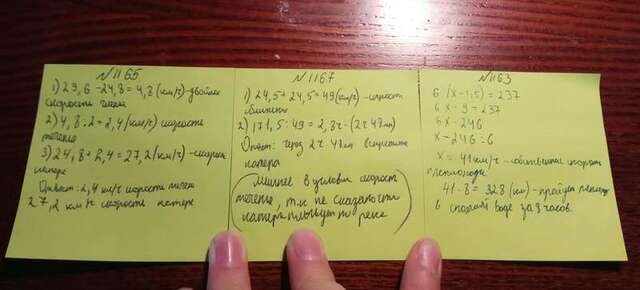 №1165
1) 29,6 - 24,8 = 4,8 (км/ч) - двойная
скорость течен
2) 4,8 : 2 = 2,4 (км/ч) скорость
течение
3) 24,8 + 2,4 = 27,2 (км/ч) - скорость
катера
Ответ: 2,4 км/ч скорость течен
27,2 км/ч скорость катера
№1167
1) 24,5 + 24,5 = 49 (км/ч) - скорость
2) 171,5 : 49 = 2,8 ч - (2ч 48м)
Ответ: через 2ч 48м встретятся
катера
лишнее в условии скорость
течение, т.к не сказано что
катера плывут по
реке
№1163
6 (x - 1,5) = 237
6x - 9 = 237
6x = 246
x = 246 : 6
x = 41 км/ч - собственная скорость
теплохода
41 · 8 = 328 (км) - пройдет теплоход
в спокой воде за 8 часов.